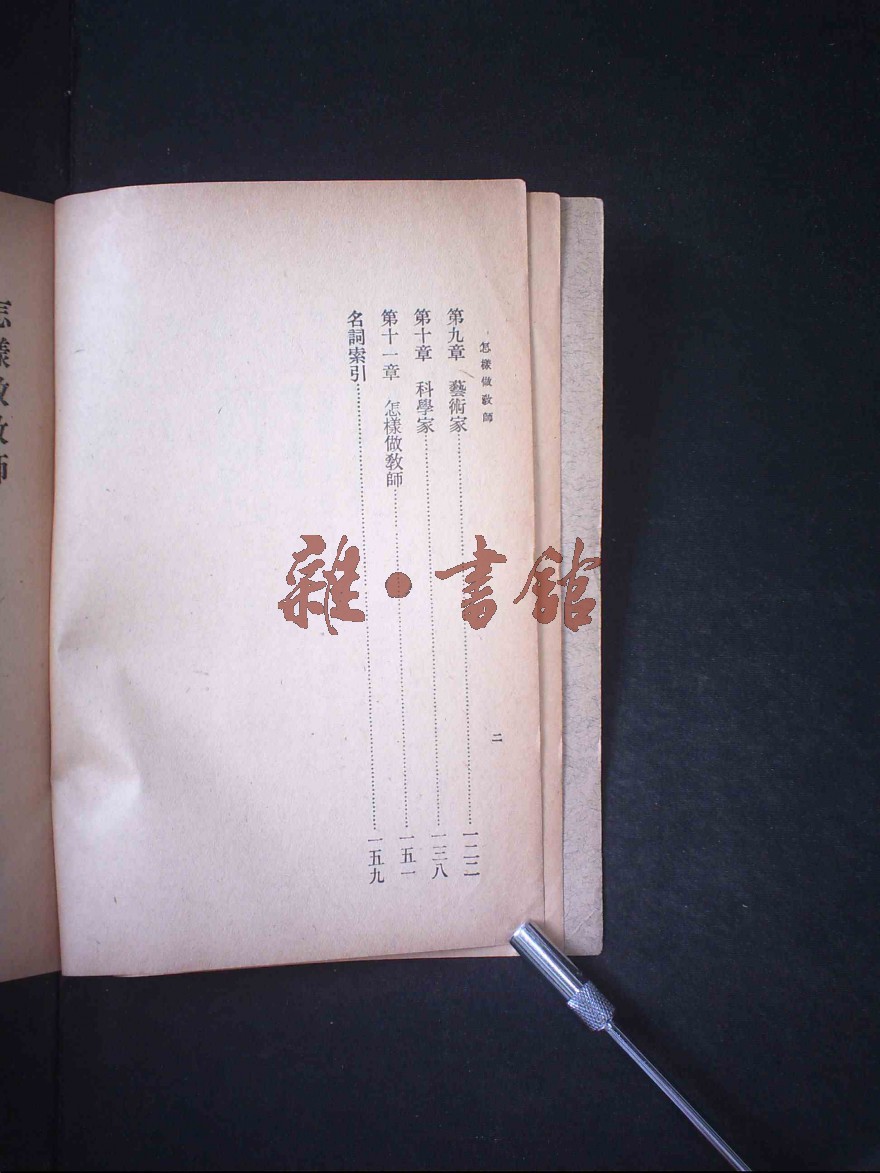 怎樣做教師
二
第九章　藝術家……一二二
第十章　科學家……一三八
第十一章　怎樣做教師……一五一
名詞索引……一五九
雜·書館
怎樣做教師